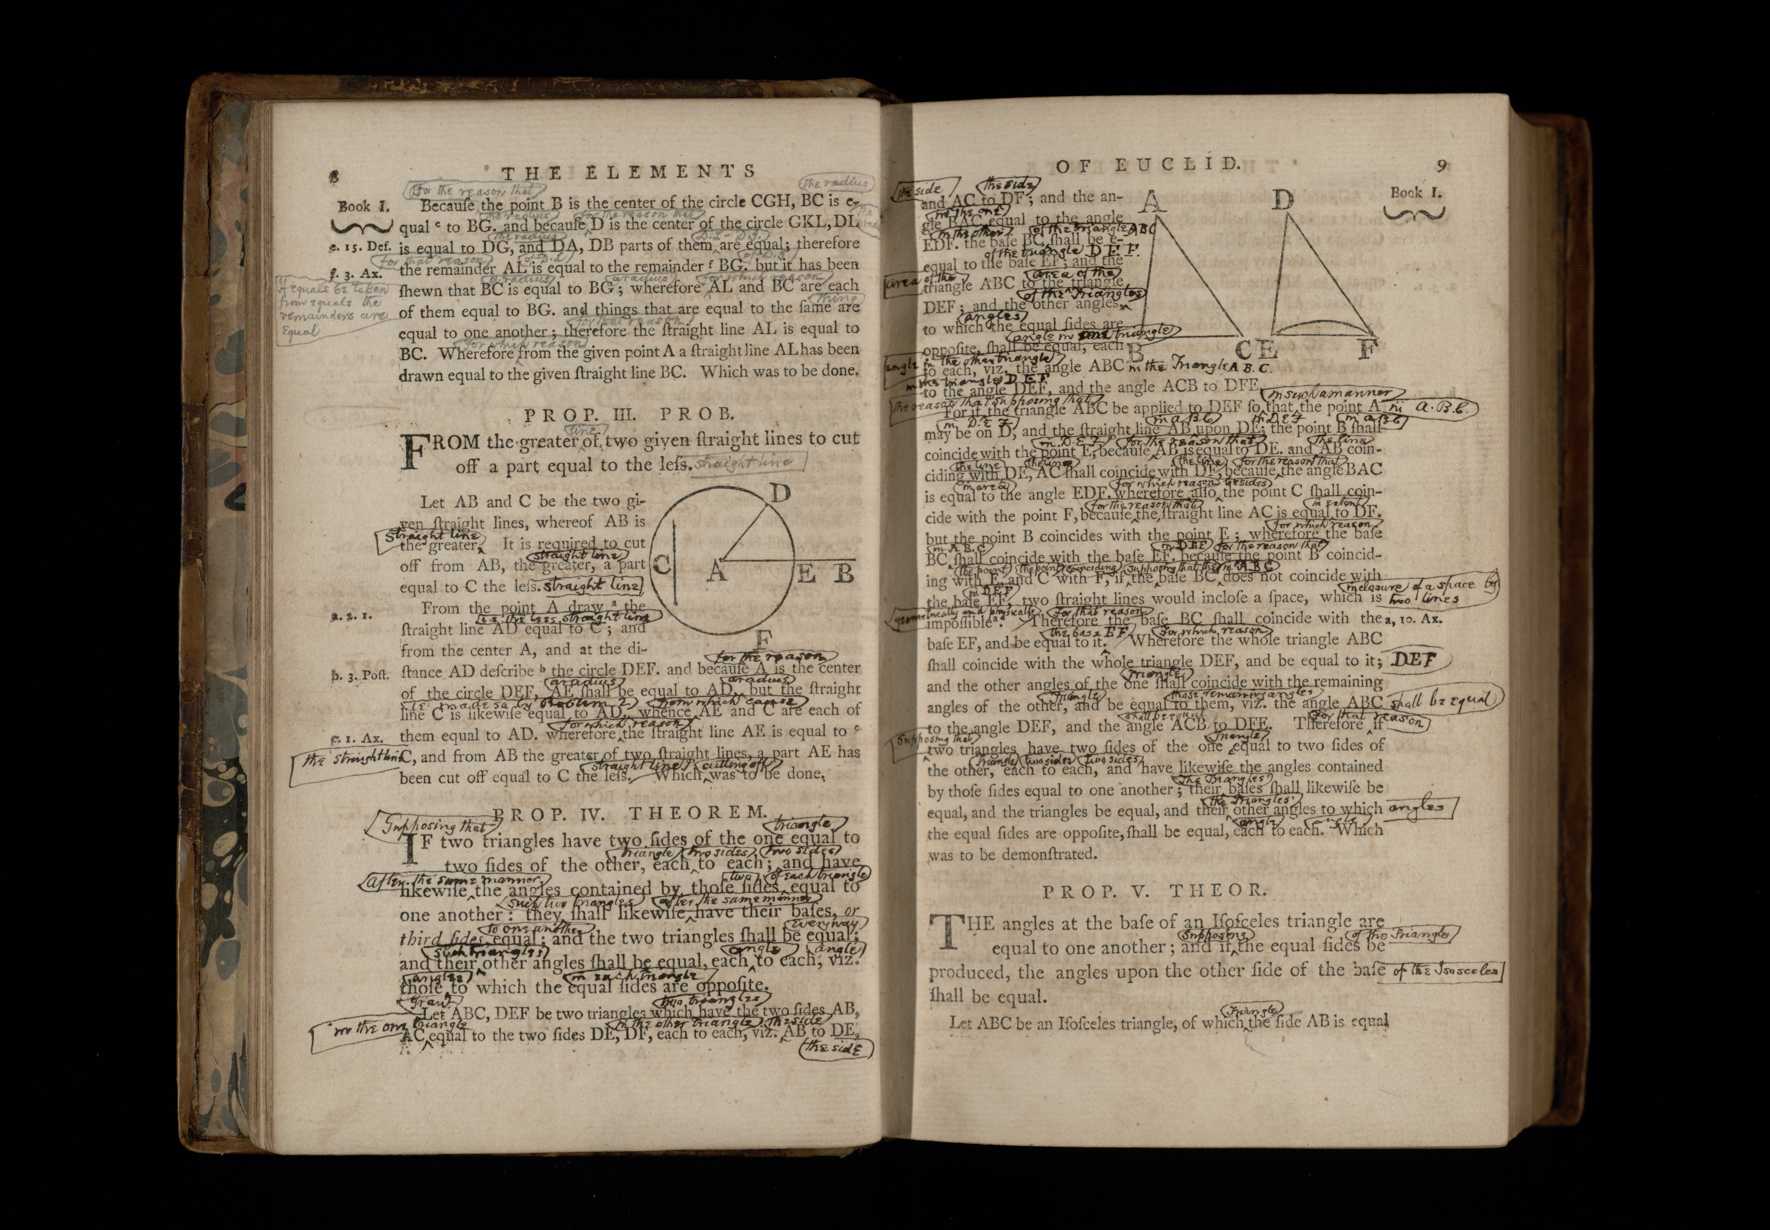 8
THE ELEMENTS
for the reason that
the radius
Book I.
Becauſe the point B is the center of the circle CGH, BC is e-
qual c to BG. and becauſe D is the center of the circle GKL, DL
e. 15. Def.
is equal to DG, and DA, DB parts of them are equal; therefore
for that reason
f. 3. Ax.
the remainder AL is equal to the remainder f BG. but it has been
if equals be taken
from equals the
remainders are
Equal
ſhewn that BC is equal to BG; wherefore AL and BC are each
thing
of them equal to BG. and things that are equal to the ſame are
for that reason
equal to one another; therefore the ſtraight line AL is equal to
for which reason
BC. Wherefore from the given point A a ſtraight line AL has been
drawn equal to the given ſtraight line BC. Which was to be done.
PROP. III. PROB.
line
FROM the greater of two given ſtraight lines to cut
off a part equal to the leſs. straight line
Let AB and C be the two gi-
ven ſtraight lines, whereof AB is
Straight line
the greater. It is required to cut
straight line
off from AB, the greater, a part
equal to C the leſs. straight line
a. 2. 1.
From the point A draw a the
the less straight line
ſtraight line AD equal to C; and
from the center A, and at the di-
D
C
A
E
B
F
for the reason
b. 3. Poſt.
ſtance AD deſcribe b the circle DEF. and becauſe A is the center
a radius
a radius
of the circle DEF, AE ſhall be equal to AD. but the ſtraight
from which cause
line C is likewiſe equal to AD, whence AE and C are each of
for which reason
c. 1. Ax.
them equal to AD. wherefore the ſtraight line AE is equal to c
the straight line
C, and from AB the greater of two ſtraight lines, a part AE has
straight line
cutting off
been cut off equal to C the leſs. Which was to be done.
PROP. IV. THEOREM.
Supposing that
triangle
IF two triangles have two ſides of the one equal to
triangle
two sides
two sides
two ſides of the other, each to each; and have
After the same manner
two
of each triangle
likewiſe the angles contained by thoſe ſides equal to
such two triangles
after the same manner
one another: they ſhall likewiſe have their baſes, or
to one another
everyway
third ſides equal; and the two triangles ſhall be equal;
such triangles
angle
angle
and their other angles ſhall be equal, each to each, viz.
angles
in each triangle
thoſe to which the equal ſides are oppoſite.
two triangles
Let ABC, DEF be two triangles which have the two ſides AB,
in the one triangle
in the other triangle
the side
AC equal to the two ſides DE, DF, each to each, viz. AB to DE,
the side
OF EUCLID.
9
Book I.
the side
the side
and AC to DF; and the an-
in the one
gle BAC equal to the angle
in the other
of the triangle ABC
EDF. the baſe BC ſhall be e-
of the triangle D E F.
equal to the baſe EF; and the
area of the
area of the
triangle ABC to the triangle
of the Triangles
DEF; and the other angles
angles
to which the equal ſides are
oppoſite, ſhall be equal, each
A
D
B
C
E
F
angle in the other triangle
to each, viz. the angle ABC in the Triangle A. B. C.
in the triangle D E F
to the angle DEF, and the angle ACB to DFE.
in such a manner
For if the triangle ABC be applied to DEF ſo that the point A in A. B. C.
may be on D, and the ſtraight line AB upon DE; the point B ſhall
in D E F
for the reason that
the line
coincide with the point E, becauſe AB is equal to DE. and AB coin-
the line
the line
the line
for the reason that
ciding with DE, AC ſhall coincide with DF, becauſe the angle BAC
for which reason besides
is equal to the angle EDF. wherefore alſo the point C ſhall coin-
for the reason that
cide with the point F, becauſe the ſtraight line AC is equal to DF.
for which reason
but the point B coincides with the point E; wherefore the baſe
in A B C
in D E F
for the reason that
BC ſhall coincide with the baſe EF, becauſe the point B coincid-
ing with E, and C with F, if the baſe BC does not coincide with
in D E F
inclosure of a space by
two lines
the baſe EF, two ſtraight lines would incloſe a ſpace, which is
geometrically and physically
for that reason
impoſſible a. Therefore the baſe BC ſhall coincide with the
a. 10. Ax.
the base EF
for which reason
baſe EF, and be equal to it. Wherefore the whole triangle ABC
ſhall coincide with the whole triangle DEF, and be equal to it; DEF
triangle
and the other angles of the one ſhall coincide with the remaining
triangle
those remaining angles
angles of the other, and be equal to them, viz. the angle ABC shall be equal
shall be equal
for that reason
to the angle DEF, and the angle ACB to DFE. Therefore if
Supposing that
triangle
two triangles have two ſides of the one equal to two ſides of
triangle
two sides
two sides
the other, each to each, and have likewiſe the angles contained
the Triangles
by thoſe ſides equal to one another; their baſes ſhall likewiſe be
the Triangles
equal, and the triangles be equal, and their other angles to which angles
angle
angle
the equal ſides are oppoſite, ſhall be equal, each to each. Which
was to be demonſtrated.
PROP. V. THEOR.
THE angles at the baſe of an Iſoſceles triangle are
Supposing
of the Triangle
equal to one another; and if the equal ſides be
produced, the angles upon the other ſide of the baſe of the Isosceles
ſhall be equal.
Triangle
Let ABC be an Iſoſceles triangle, of which the ſide AB is equal